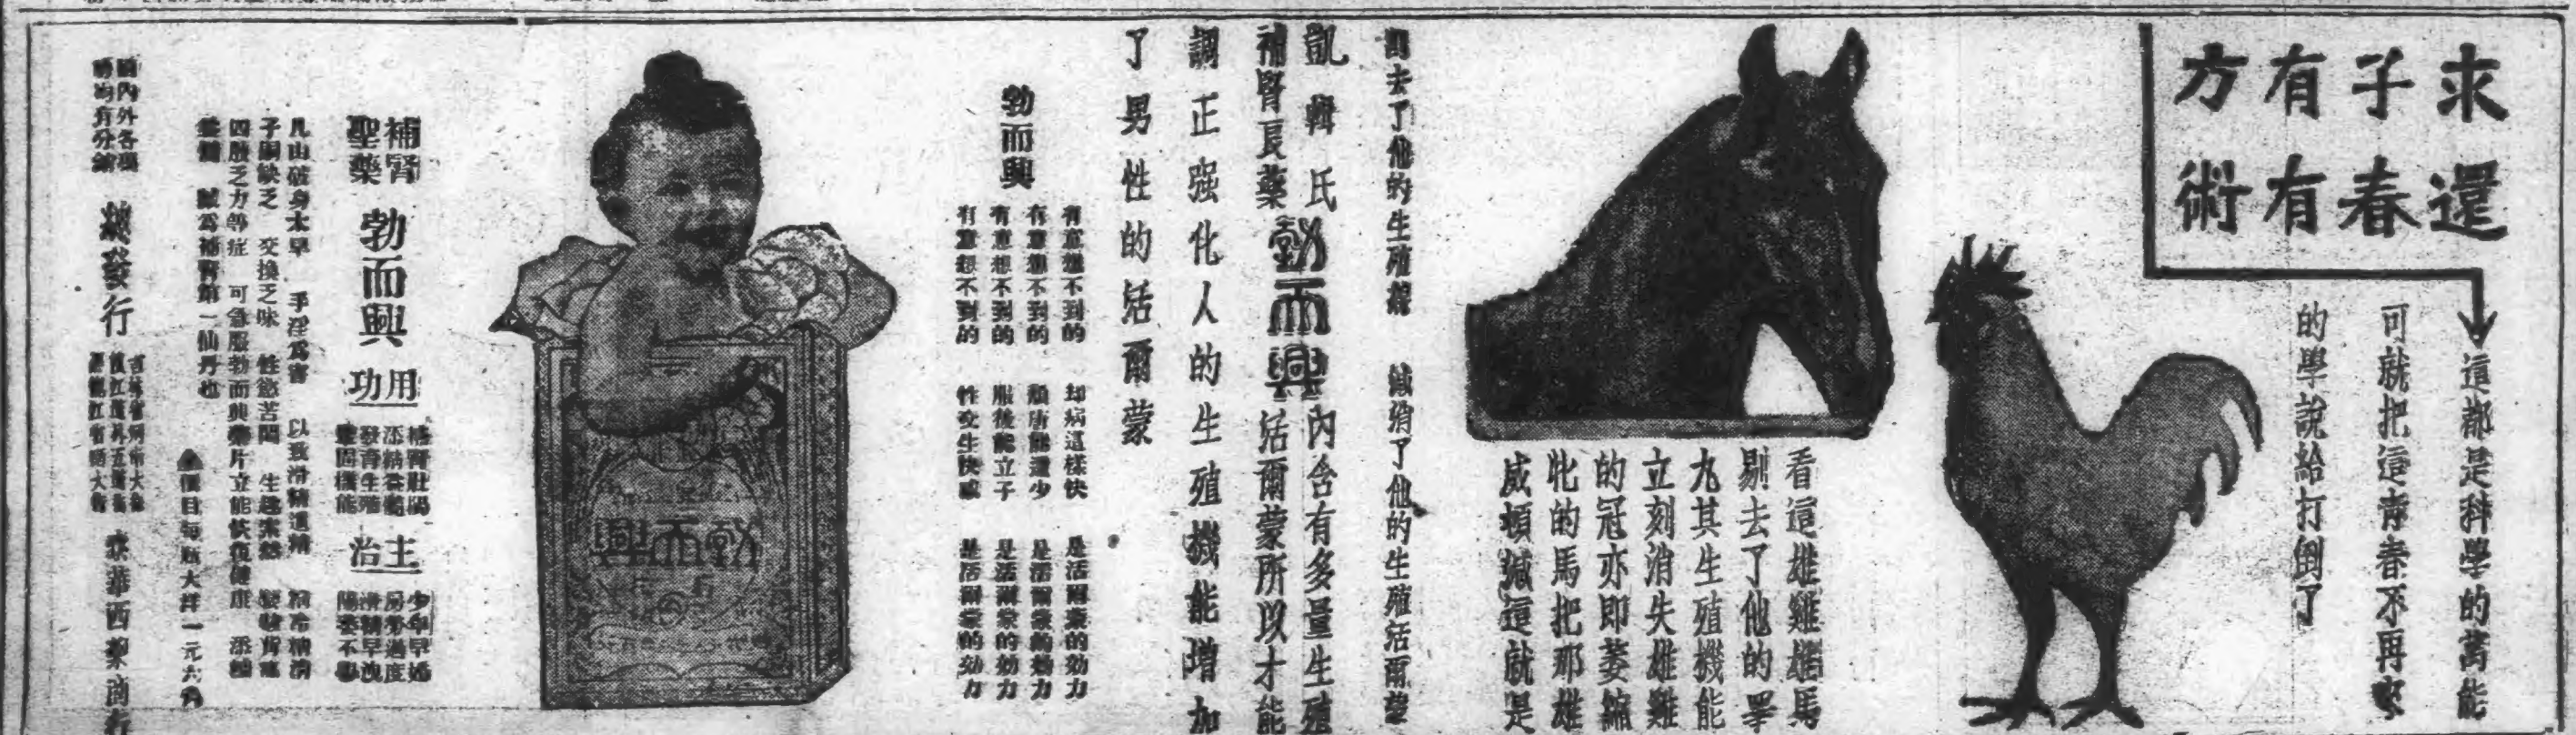 求子有方
還春有術
這都是科學的萬能
可就把這青春不再來
的學說給打倒了
看這雄雞雄馬
剔去了他的睪
丸其生殖機能
立刻消失雄雞
的冠亦即萎縮
牝的馬把那雄
威頓減這就是
割去了他的生殖腺 減消了他的生殖活爾蒙
凱輯氏
補腎良藥
勃而興
內含有多量生殖
活爾蒙所以才能
調正强化人的生殖機能增加
了男性的活爾蒙
勃而興
有意想不到的 却病這樣快 是活爾蒙的効力
有意想不到的 頹唐能還少 是活爾蒙的効力
有意想不到的 服後能立子 是活爾蒙的効力
有意想不到的 性交生快感 是活爾蒙的効力
勃而興
補腎
聖藥
勃而興
用功
補腎壯陽
添精益髓
發育生殖
主治
少年早婚
房勞過度
滑精早洩
陽萎不舉
凡由破身太早 手淫為害 以致滑精遺精 精冷精清
子嗣缺乏 交換乏味 性慾苦悶 生趣索然
四肢乏力等症 可急服勃而興藥片立能恢復健康 添精
誠為補腎第一仙丹也
▲價目每瓶大洋一元六角
國內外各埠
均有分銷
總發行
西藥商行